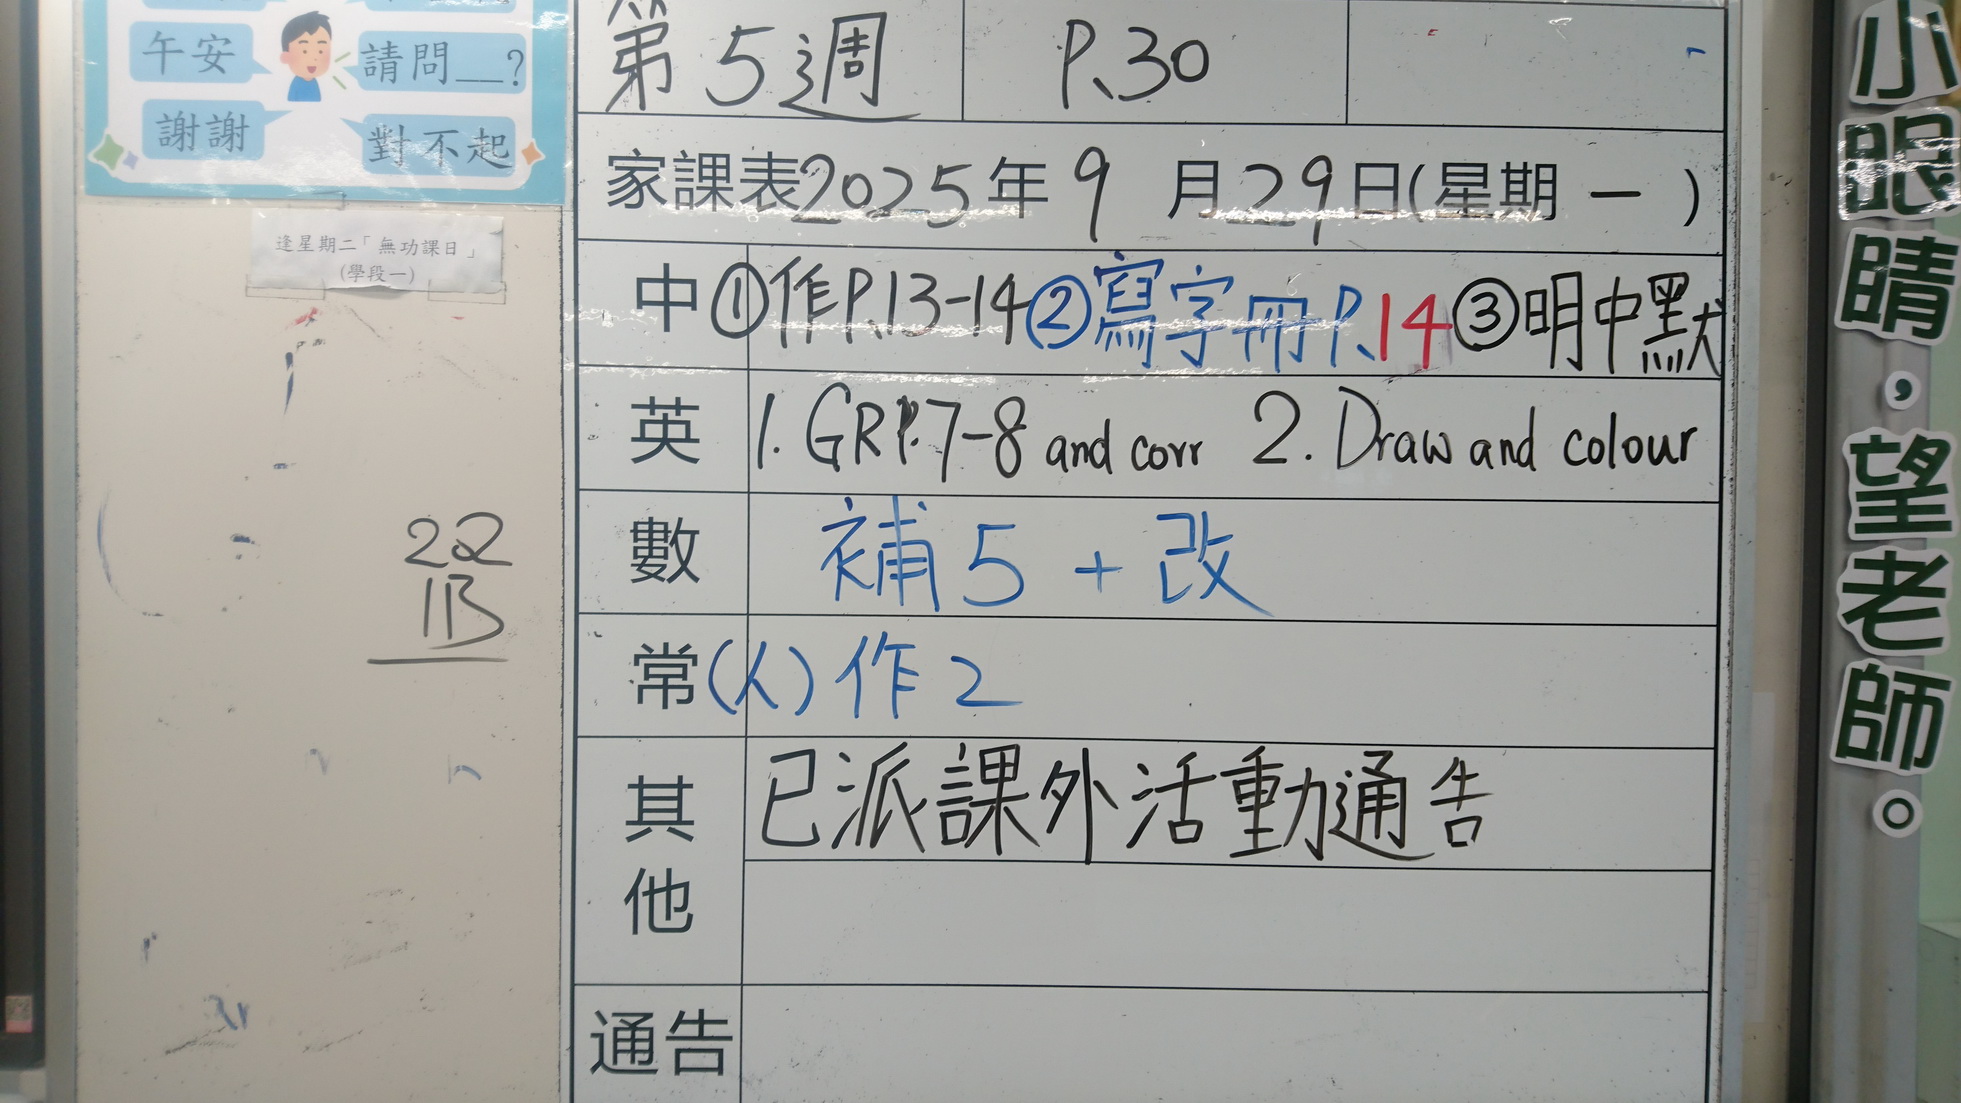 午安
請問__?
謝謝
對不起
逢星期二「無功課日」
(學段一)
22
1B
第5週 P.30
家課表2025年9月29日(星期一)
中 ①作P.13-14②寫字冊P.14③明中默
英 1. GR P.7-8 and corr 2. Draw and colour
數 補5+改
常 (人)作2
其他 已派課外活動通告
通告
小眼睛，望老師。